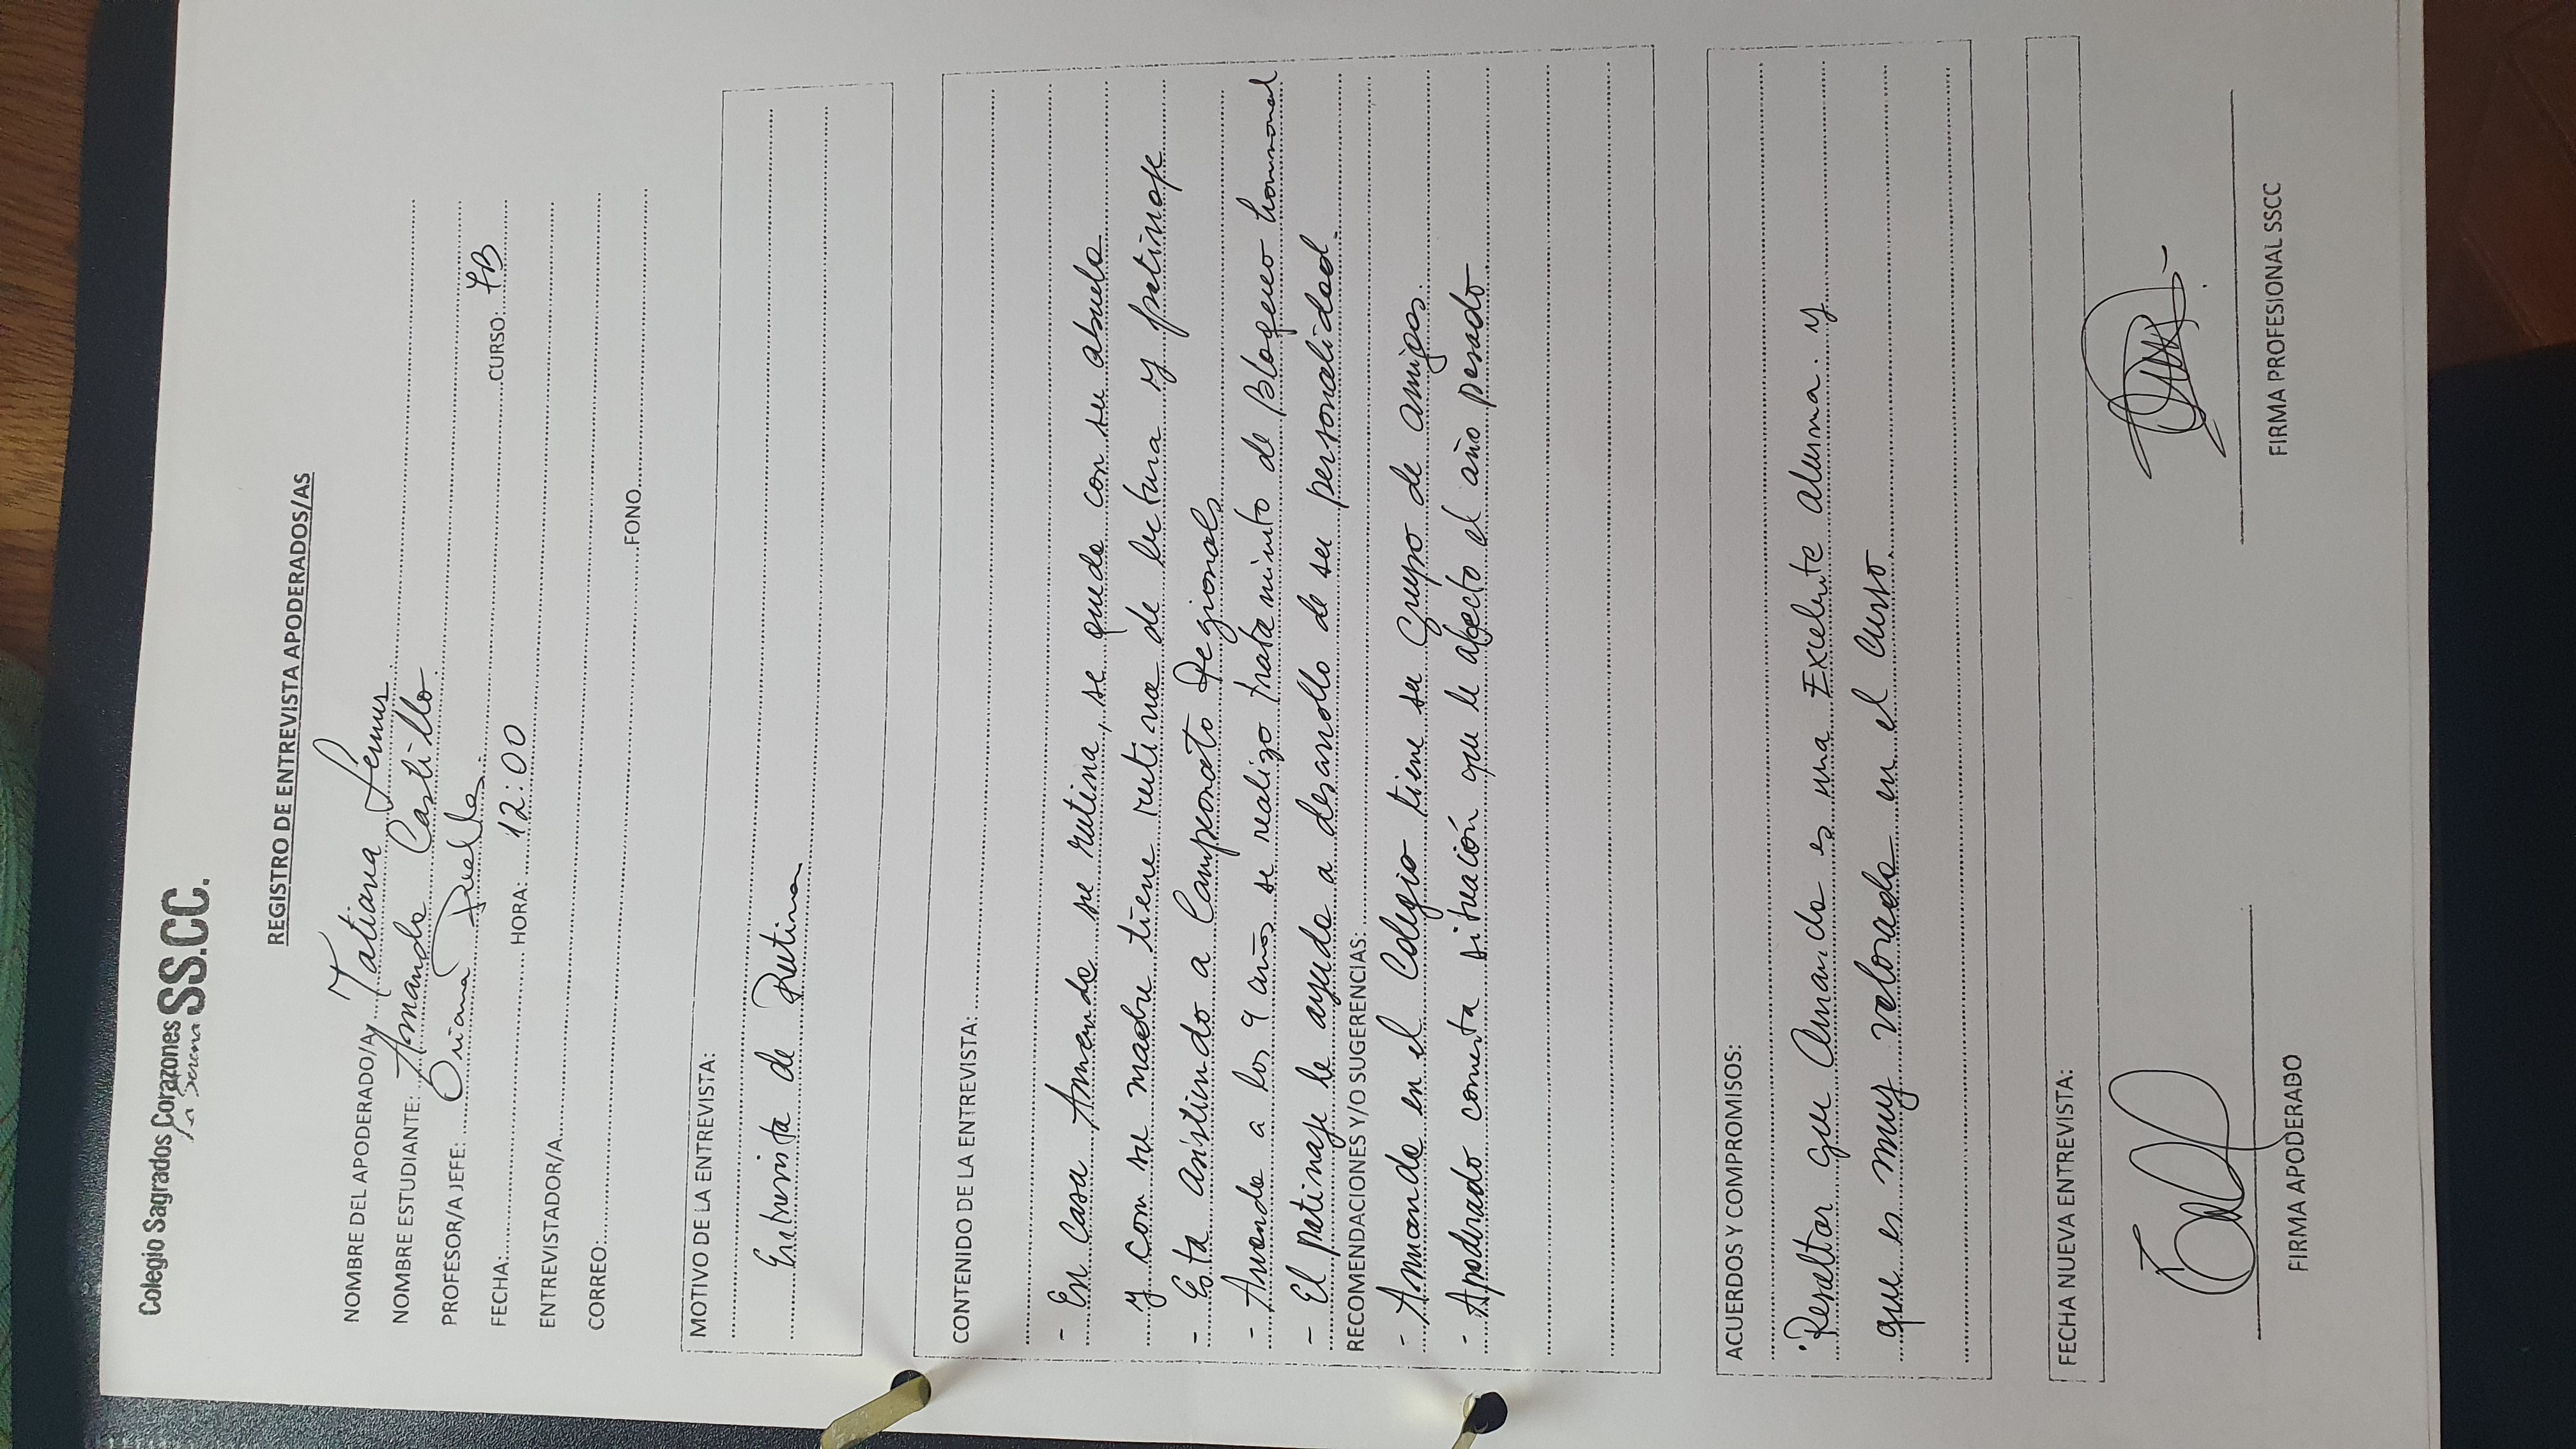 Colegio Sagrados Corazones SS.CC.
La Serena
REGISTRO DE ENTREVISTA APODERADOS/AS
NOMBRE DEL APODERADO/A: Tatiana Lemus
NOMBRE ESTUDIANTE: Amanda Castillo.
PROFESOR/A JEFE: Oriana
FECHA: HORA: 12:00 CURSO: 7B
ENTREVISTADOR/A
CORREO: FONO
MOTIVO DE LA ENTREVISTA:
Entrevista de Rutina
CONTENIDO DE LA ENTREVISTA:
- En casa Amanda su rutina, se queda con su abuela
y con su madre tiene rutina de lectura y patinaje
- Esta asistiendo a Campeonato Regionals
- Amanda a los 9 años se realizo tratamiento de Bloqueo hormonal
- El patinaje le ayuda a desarrollo de su personalidad.
RECOMENDACIONES Y/O SUGERENCIAS:
- Amanda en el Colegio tiene su Grupo de amigos.
- Apoderado comenta situación que le afecto el año pasado
ACUERDOS Y COMPROMISOS:
Resaltar que Amanda es una Excelente alumna. y
que es muy valorada en el curso.
FECHA NUEVA ENTREVISTA:
FIRMA APODERADO FIRMA PROFESIONAL SSCC